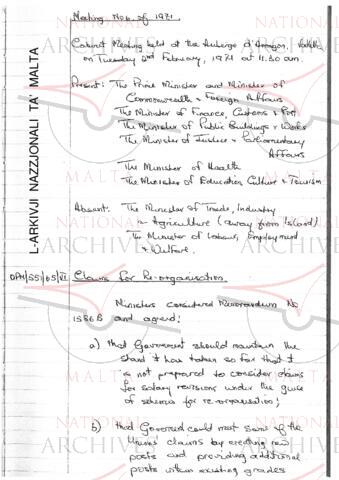 Meeting No 6 of 1971.
Cabinet Meeting held at the Auberge d'Aragon, Valletta
on Tuesday 2nd February, 1971 at 11.30 am.
Present: The Prime Minister and Minister of
Commonwealth & Foreign Affairs
The Minister of Finance, Customs & Port
The Minister of Public Buildings & Works
The Minister of Justice & Parliamentary
Affairs
The Minister of Health
The Minister of Education Culture & Tourism
Absent: The Minister of Trade, Industry
& Agriculture (away from Island)
The Minister of Labour, Employment
& Welfare.
OPM/551/65/VI Claims for Re-organisation
Ministers considered Memorandum No
1586B and agreed:
a) that Government should maintain the
stand it has taken so far that it
is not prepared to consider claims
for salary revisions under the guise
of schemes for re-organisation;
b) that Government could meet some of the
Unions' claims by creating new
posts and providing additional
posts within existing grades
L-ARKIVJI NAZZJONALI TA' MALTA